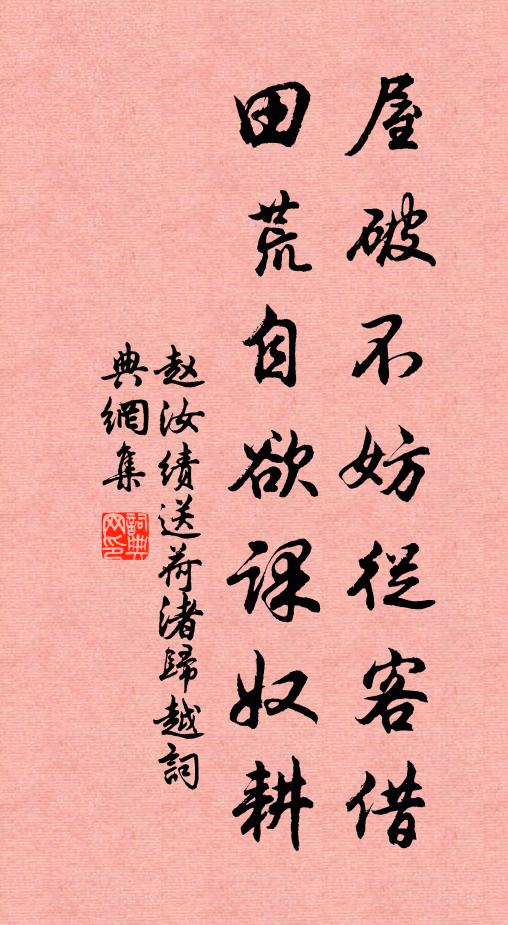 屋破不妨從客借
田荒自欲課奴耕
赵汝绩送荷渚歸越詞
典網集
詞典网印